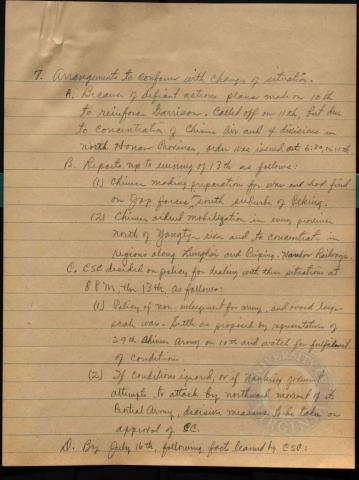 7. Arrangements to conform with change of situation.
A. Because of defiant actions plans made on 10th
to reinforce Garrison. Called off on 11th, but due
to concentration of Chinese air and 4 divisions in
north Honan Province, order was issued at 6:30,
B. Reports up to evening of 13th as follows:
(1) Chinese making preparation for war and had fired
on Jap forces, south suburb of Peking.
(2) Chinese ordered mobilization in every province
north of Yangtze river and to concentrate in
regions along Lunghai and Peiping-Hankow Railways.
C. CSC decided on policy for dealing with this situation at
8 PM the 13th, as follows:
(1) Policy of non-enlargement for army, and avoid large
scale war. Settle as proposed by representative of
29th Chinese Army on 10th and watch for fulfilment
of conditions.
(2) If conditions ignored, or if Nanking
attempts to attack by northward movement of its
Central Army, decisive measures to be taken on
approval of CC.
D. By July 16th, following fact learned by CSC: